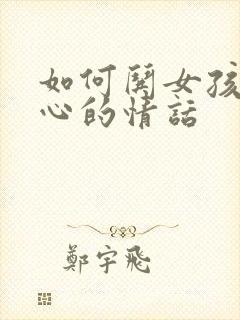 如何閧女孩
心的情話
鄭宇飛